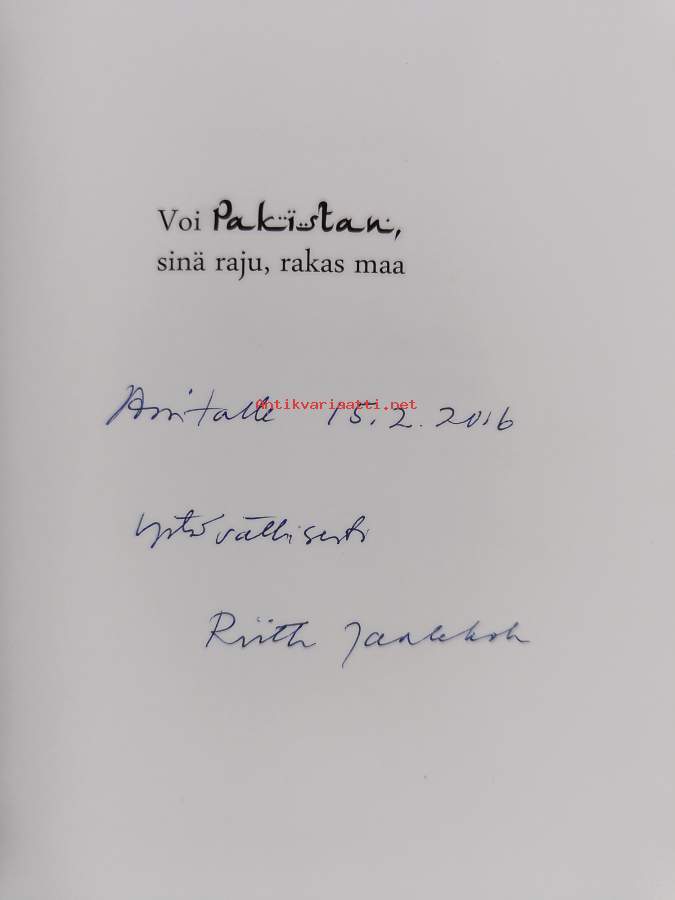 Voi Pakistan,
sinä raju, rakas maa
Anitalle 15.2.2016
Antikvariaatti.net
ystävällisesti
Riitta